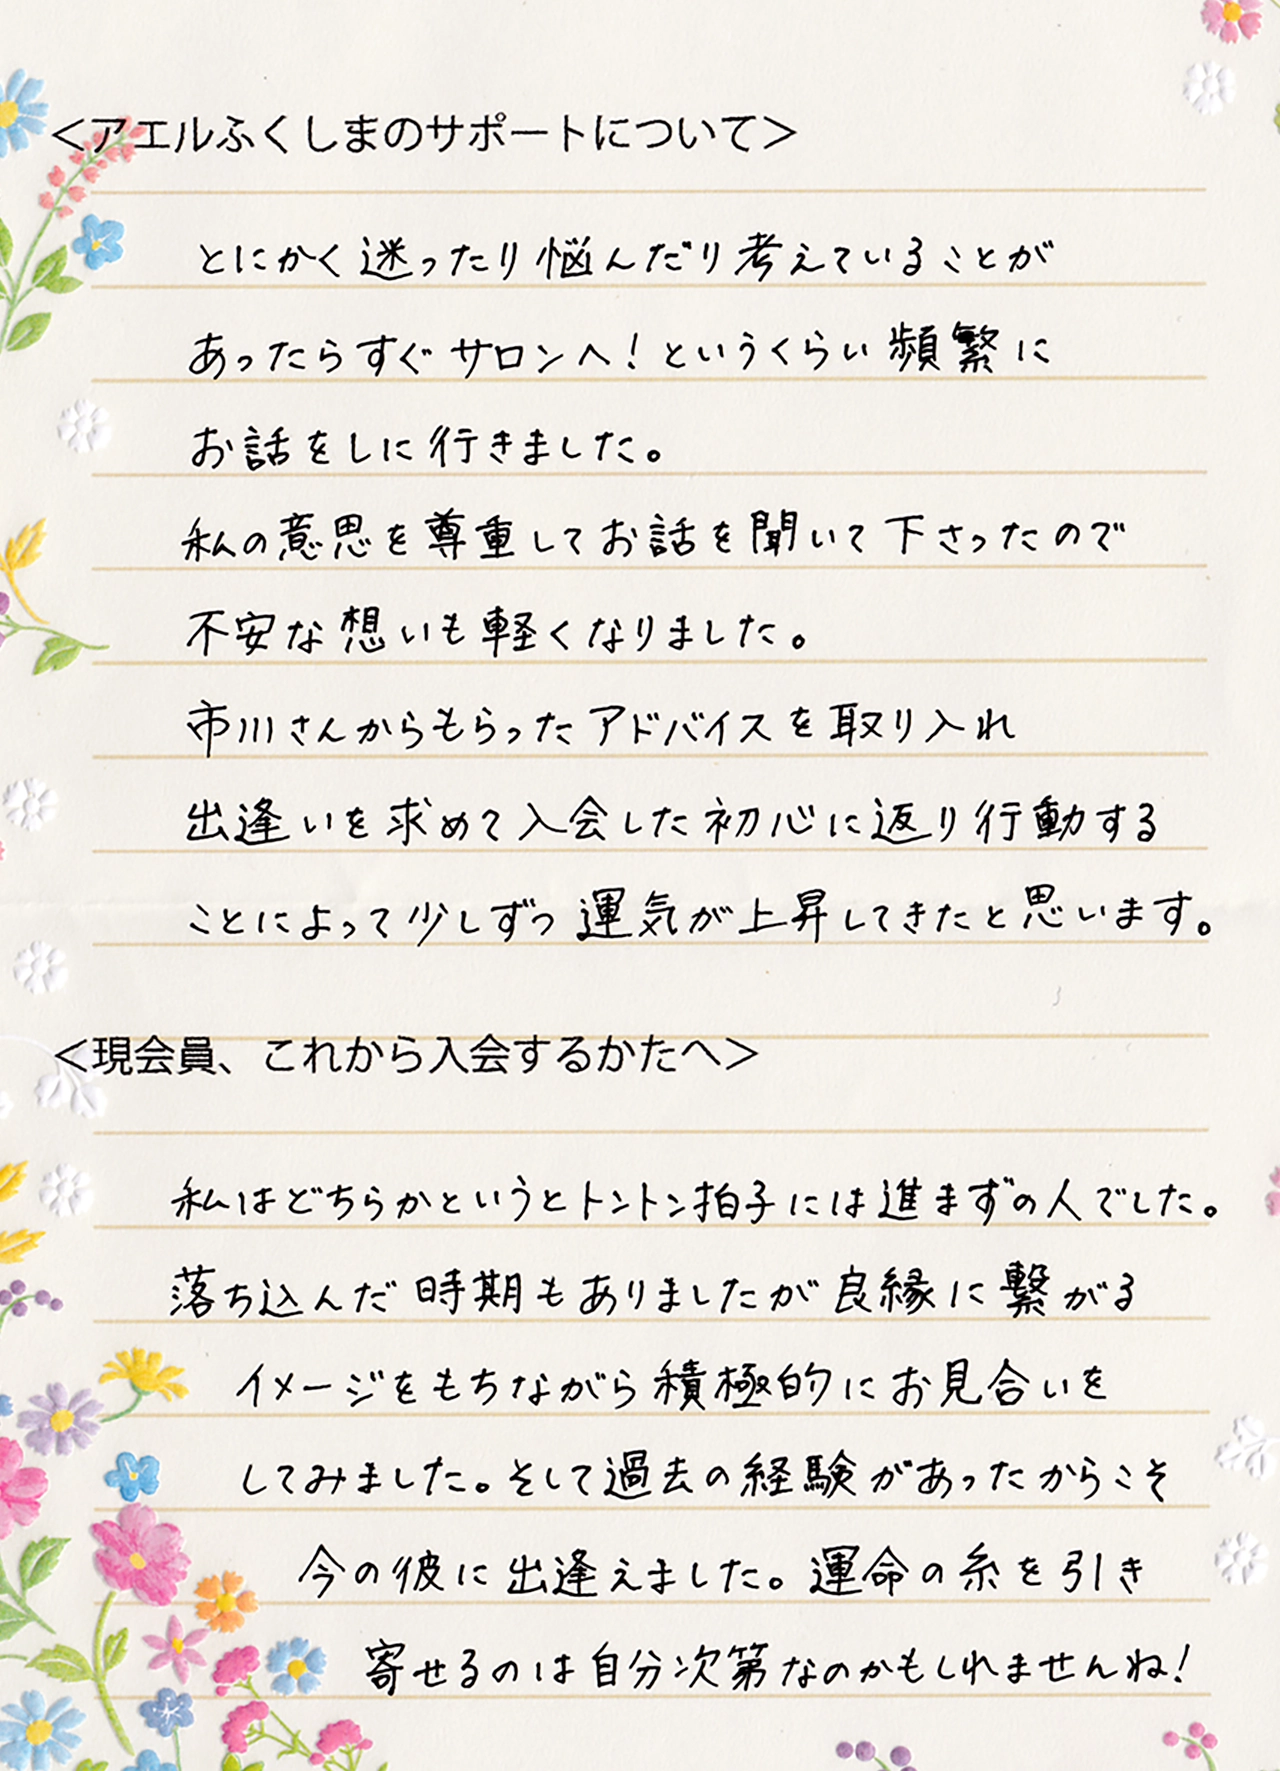 ＜アエルふくしまのサポートについて＞
とにかく迷ったり悩んだり考えていることが
あったらすぐサロンへ！というくらい頻繁に
お話をしに行きました。
私の意思を尊重してお話を聞いて下さったので
不安な想いも軽くなりました。
市川さんからもらったアドバイスを取り入れ
出逢いを求めて入会した初心に返り行動する
ことによって少しずつ運気が上昇してきたと思います。
＜現会員、これから入会するかたへ＞
私はどちらかというとトントン拍子には進まずの人でした。
落ち込んだ時期もありましたが良縁に繋がる
イメージをもちながら積極的にお見合いを
してみました。そして過去の経験があったからこそ
今の彼に出逢えました。運命の糸を引き
寄せるのは自分次第なのかもしれませんね！